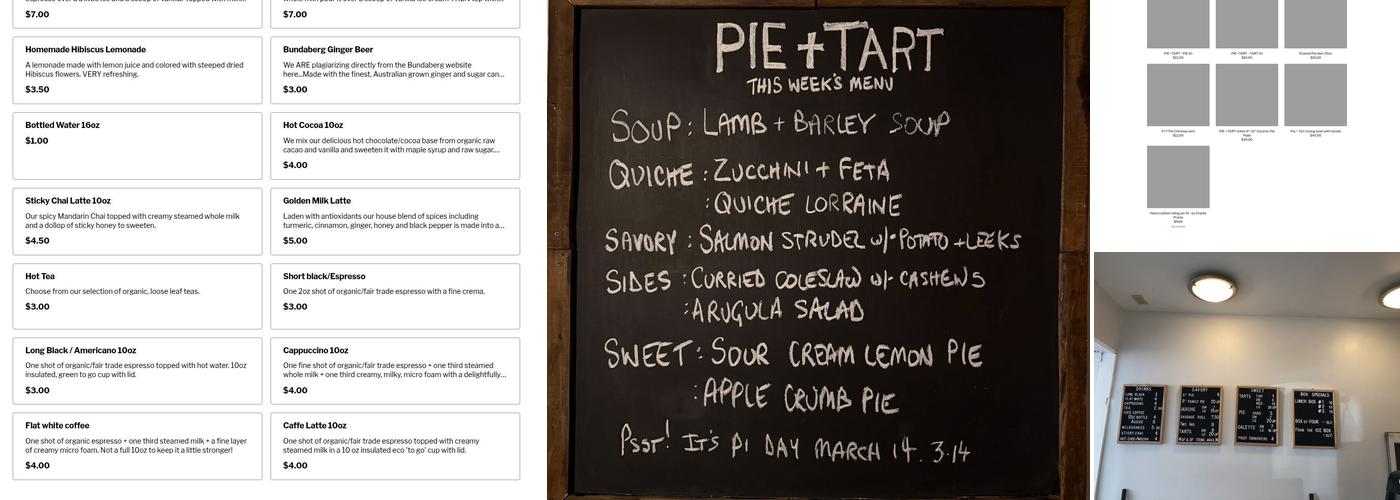 $7.00
$7.00
Homemade Hibiscus Lemonade
A lemonade made with lemon juice and colored with steeped dried
Hibiscus flowers. VERY refreshing.
$3.50
Bundaberg Ginger Beer
We ARE plagiarizing directly from the Bundaberg website
here...Made with the finest, Australian grown ginger and sugar can...
$3.00
Bottled Water 16oz
$1.00
Hot Cocoa 10oz
We mix our delicious hot chocolate/cocoa base from organic raw
cacao and vanilla and sweeten it with maple syrup and raw sugar....
$4.00
Sticky Chai Latte 10oz
Our spicy Mandarin Chai topped with creamy steamed whole milk
and a dollop of sticky honey to sweeten.
$4.50
Golden Milk Latte
Laden with antioxidants our house blend of spices including
turmeric, cinnamon, ginger, honey and black pepper is made into a...
$5.00
Hot Tea
Choose from our selection of organic, loose leaf teas.
$3.00
Short black/Espresso
One 2oz shot of organic/fair trade espresso with a fine crema.
$3.00
Long Black / Americano 10oz
One shot of organic/fair trade espresso topped with hot water. 10oz
insulated, green to go cup with lid.
$3.00
Cappuccino 10oz
One fine shot of organic/fair trade espresso + one third steamed
whole milk + one third creamy, milky, micro foam with a delightfully...
$4.00
Flat white coffee
One shot of organic espresso + one third steamed milk + a fine layer
of creamy micro foam. Not a full 10oz to keep it a little stronger!
$4.00
Caffe Latte 10oz
One shot of organic/fair trade espresso topped with creamy
steamed milk in a 10 oz insulated eco 'to go' cup with lid.
$4.00
PIE + TART
THIS WEEK'S MENU
SOUP: LAMB + BARLEY SOUP
QUICHE: ZUCCHINI + FETA
: QUICHE LORRAINE
SAVORY: SALMON STRUDEL w/- POTATO + LEEKS
SIDES: CURRIED COLESLAW w/- CASHEWS
: ARUGULA SALAD
SWEET: SOUR CREAM LEMON PIE
: APPLE CRUMB PIE
Pssst! IT'S PI DAY MARCH 14. 3.14
DRINKS
LONG BLACK
FLAT WHITE
CAPPUCCINO
TEA
SAVORY
QUICHE
SAUSAGE ROLL
TARTS
SWEET
TARTS
PIE
GALETTE
FRUIT TURNOVERS
BOX SPECIALS
LUNCH BOX
BOX OF FOUR
FROM THE ICE BOX